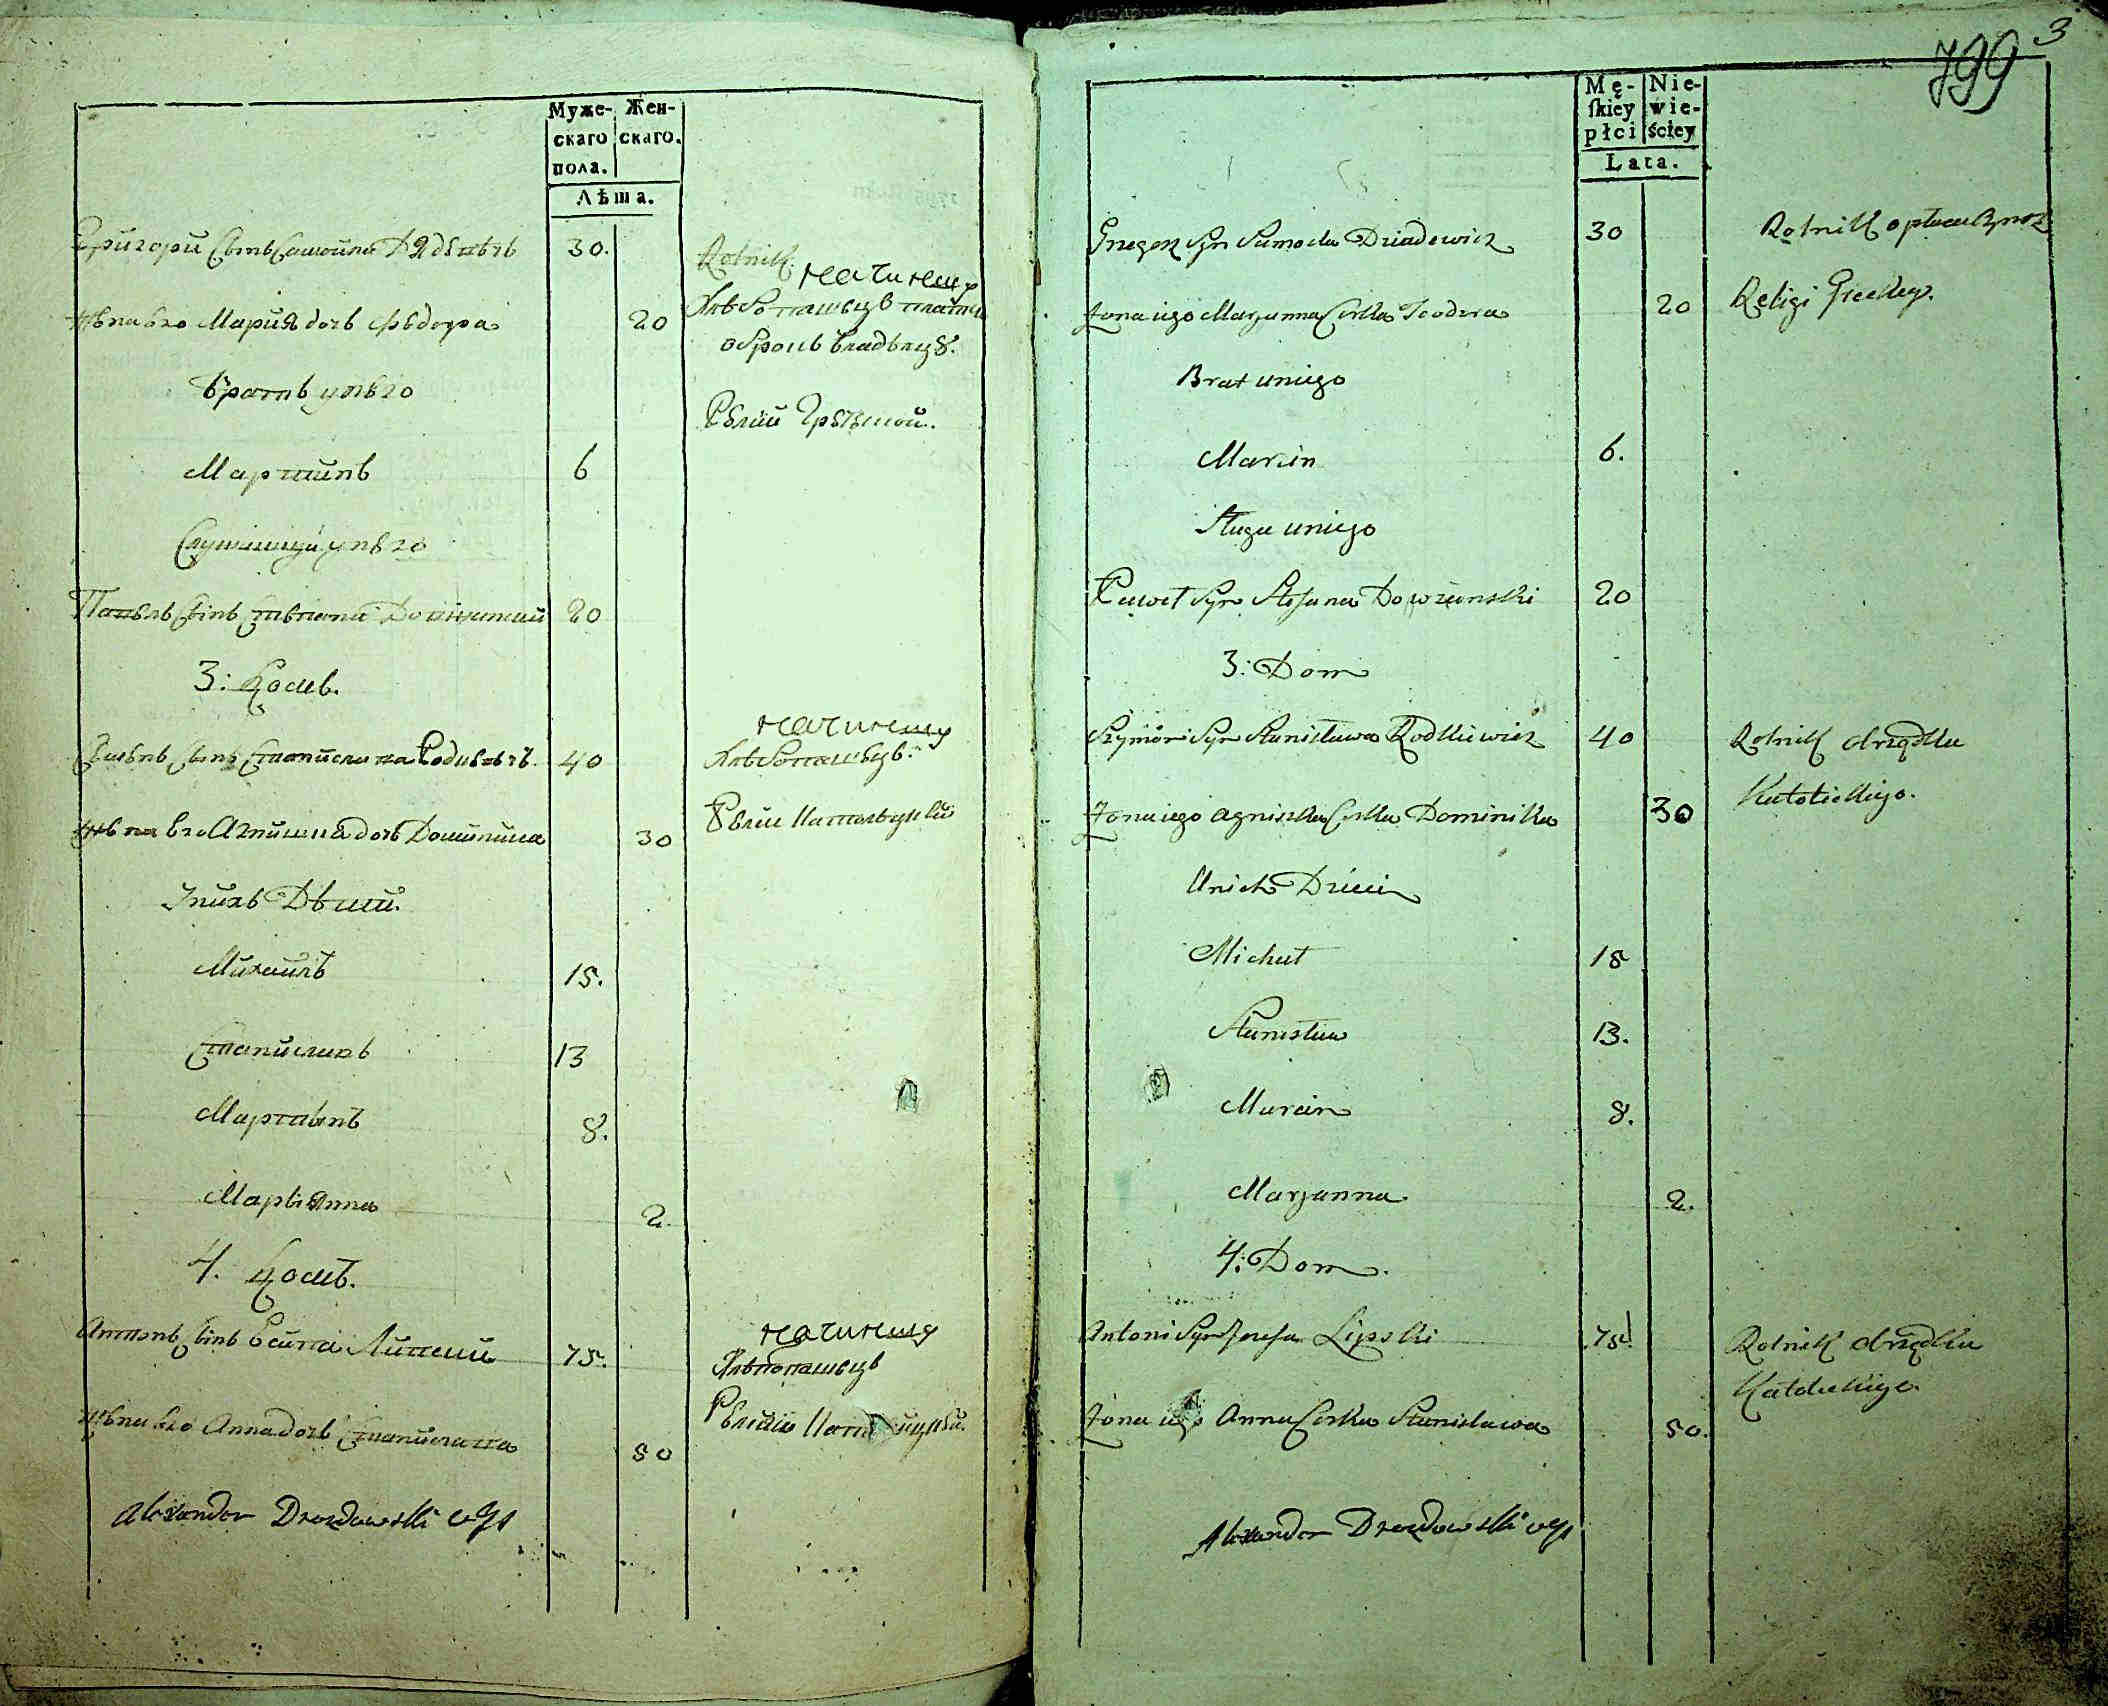 Муже-
скаго
пола.
Жен-
скаго.
Лѣта.
Григори Сынъ Самойла Дядевичъ 30.
Rolnik.
начинщ
Жена его Мария дочь Федора 20
Хлебопашецъ платит
оброкъ владелцу.
Братъ у него
Релии Греческой.
Мартинъ 6
Служащи у него
Павелъ Сынъ Степана 20
3: Домъ.
начинщ
Сынъ Станислава Родкевичъ 40
Хлебопашецъ.
Жена его Агнишка дочь Доминика 30
Релии Католицкой
У нихъ Дети
Михаилъ 15.
Станиславъ 13
Мартинъ 8.
Марианна 2.
4. Домъ.
начинщ
Антонъ Сынъ Осипа Липский 75.
Хлебопашецъ
Жена его Анна дочь Станислава 50
Alexander Drozdowski
3
799
Mę-
ſkiey
płci
Nie-
wie-
ściey
Lata.
Grzegorz Syn Samoela Dziadewicz 30
Rolnik opłaca
Żona iego Maryanna Corka Teodora 20
Religi Greckey.
Brat uniego
Marcin 6.
Sługa uniego
Paweł Syn Stefana Dowżanski 20
3: Dom
Szymon Syn Stanisława Rodkiewicz 40
Rolnik obrządku
Katolickiego.
Żona iego Agniszka Corka Dominika 30
Unich Dzieci
Michał 15
Stanisław 13.
Marcin 8.
Maryanna 2.
4: Dom.
Antoni Syn Jozefa Lipski 75.
Rolnik obrządku
Katolickiego
Żona iego Anna Corka Stanisława 50.
Alexander Drozdowski